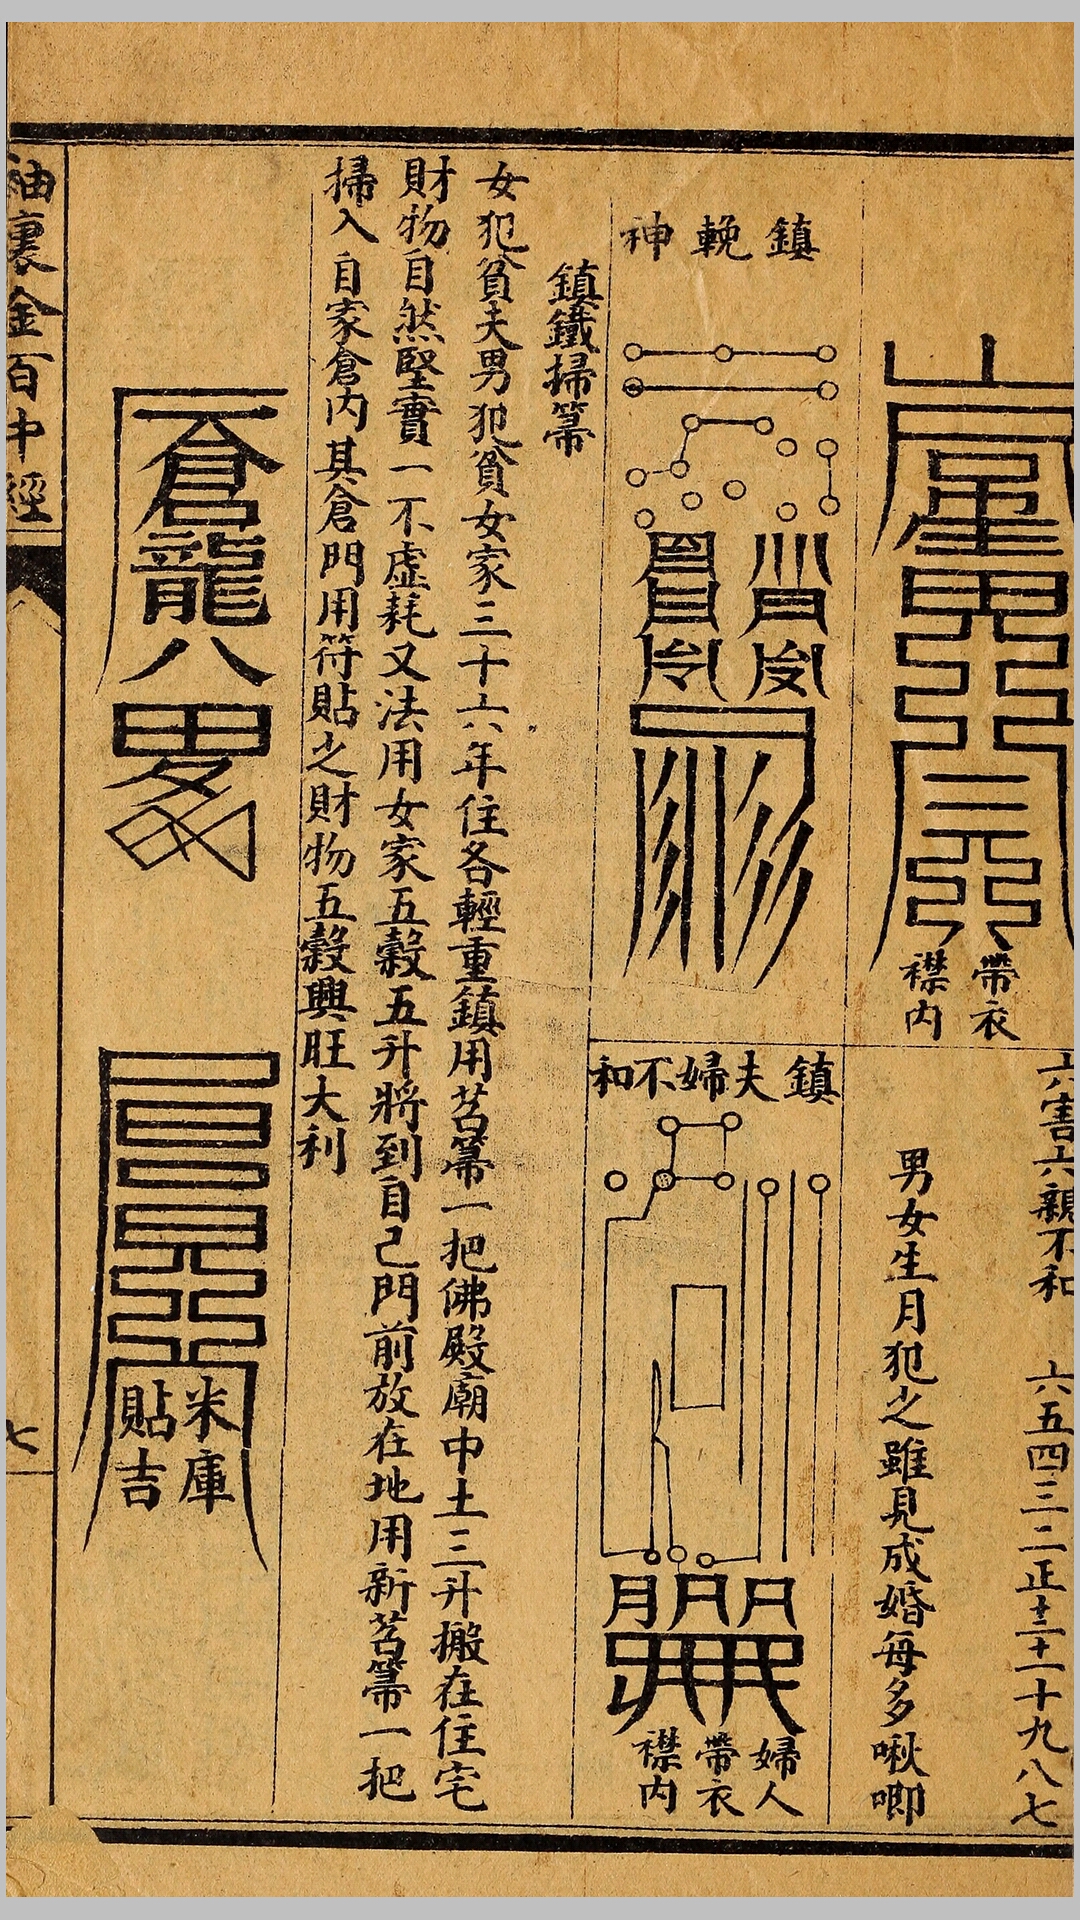 帶衣
襟內
六害六親不和　六五四三二正十二十一十九八七
男女生月犯之雖見成婚每多啾唧
鎮輓神
鎮夫婦不和
婦人
帶衣
襟內
鎮鐵掃箒
女犯貧夫男犯貧女家三十六年住各輕重鎮用苕箒一把佛殿廟中土三升搬在住宅
財物自然堅實一不虛耗又法用女家五穀五升將到自己門前放在地用新苕箒一把
掃入自家倉內其倉門用符貼之財物五穀興旺大利
倉龍八
米庫
貼吉
袖裏金百中經
七